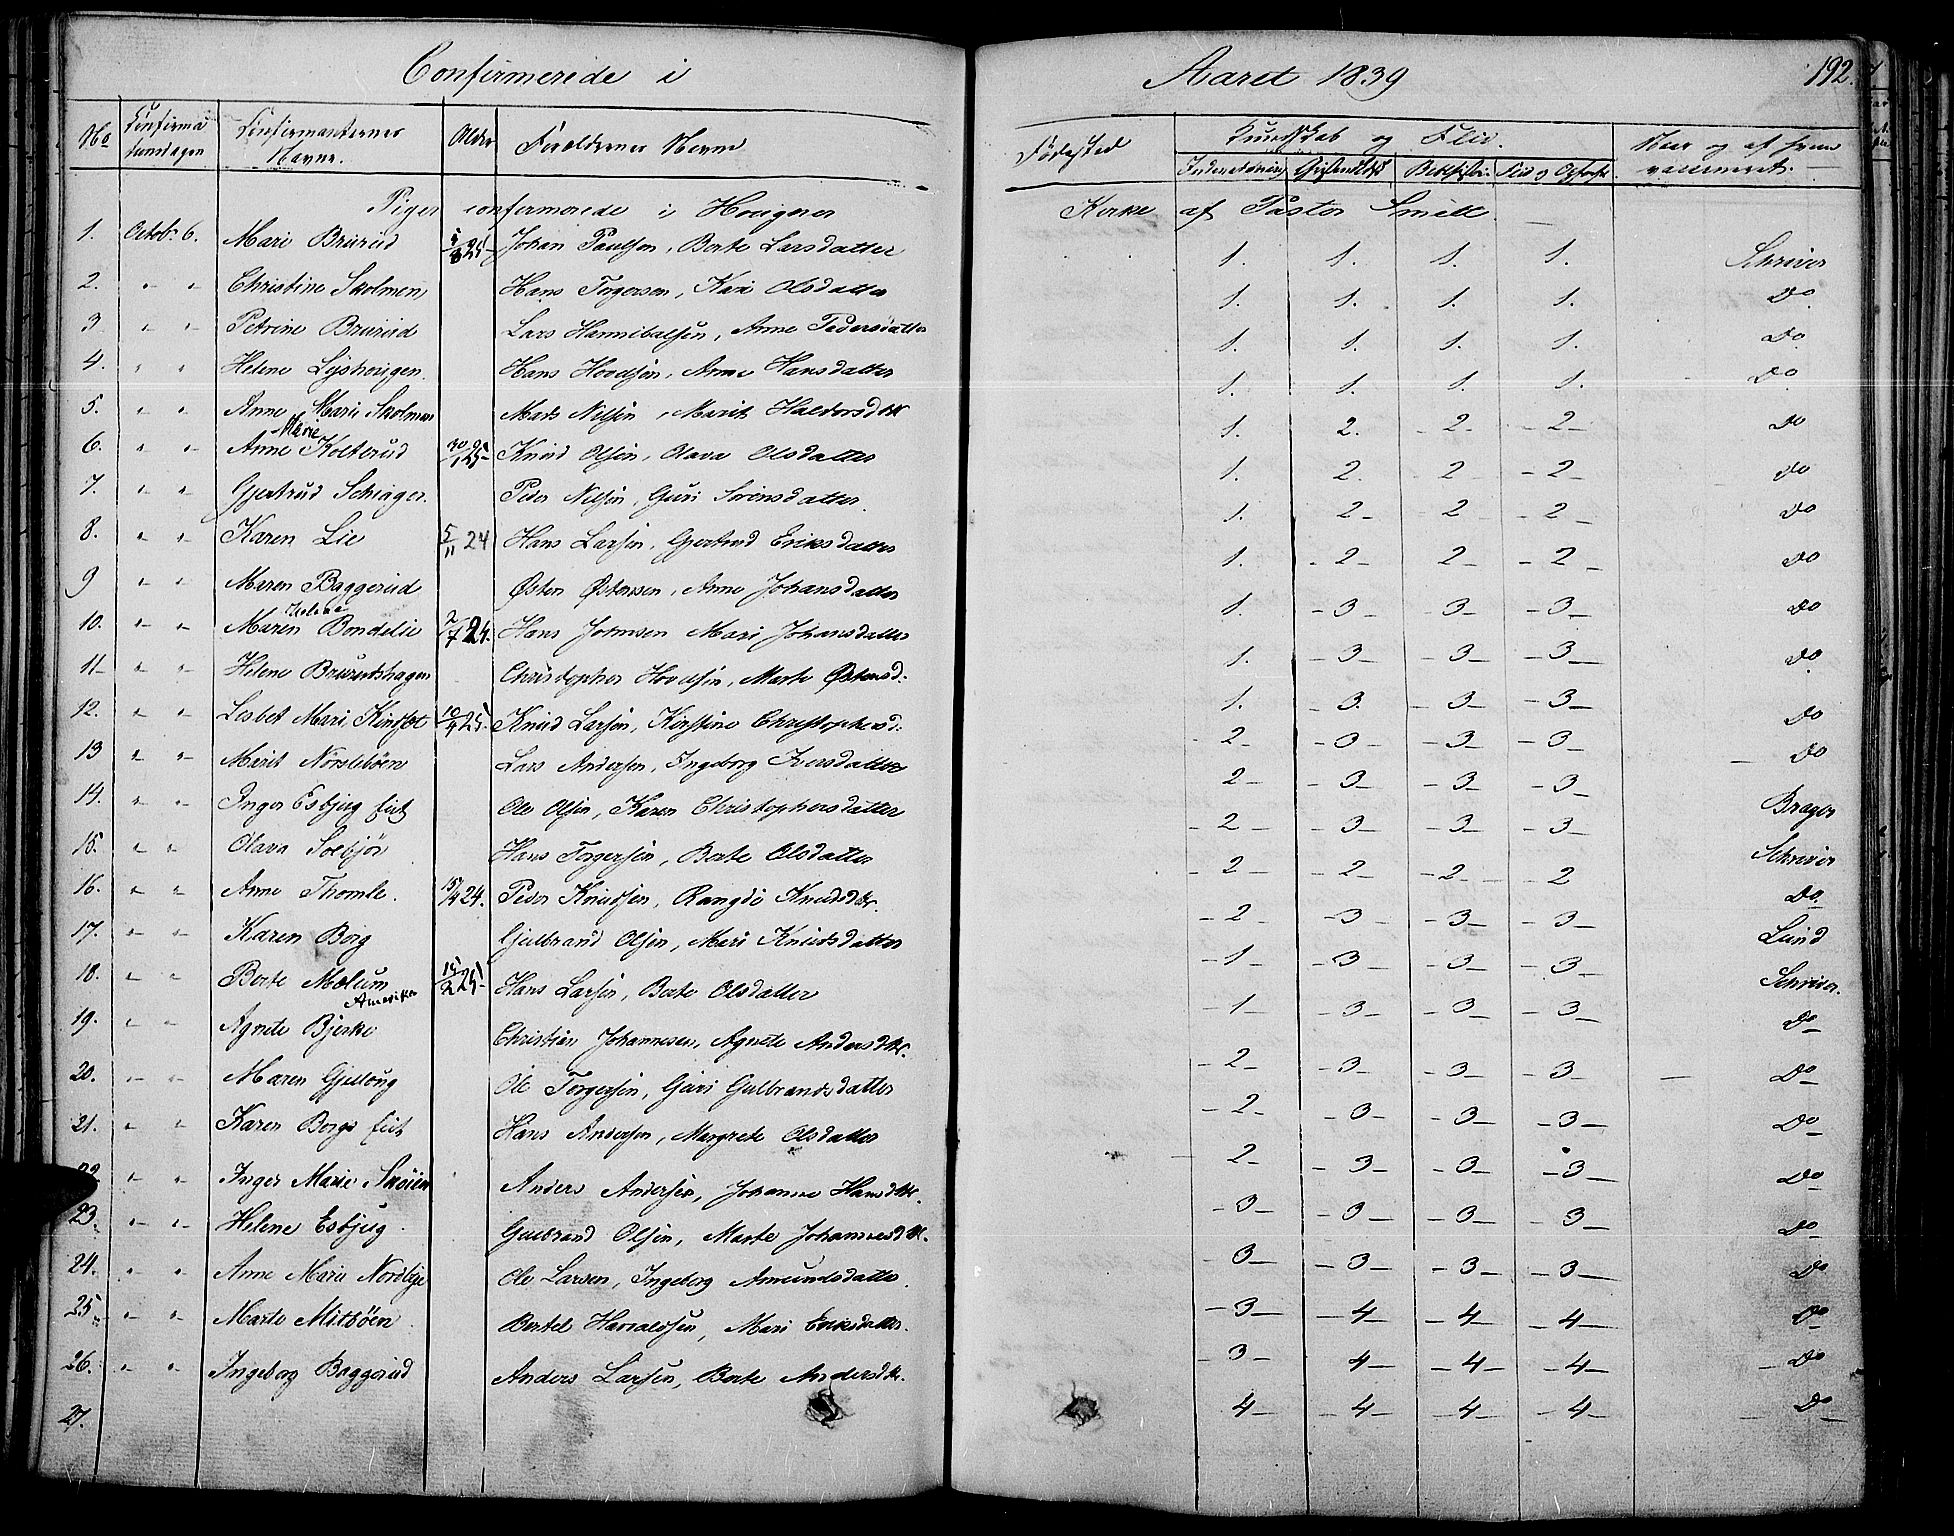 Confirmerede i Aaret 1839 192.
No Confirma tionsdagen Confirmanternes Navne. Alder Forældrenes Navne Fødested Kundskab og Flid. Naar og af hvem vaccineret.
Indenadslæsning Christendom Flid og
Piger confirmerede i Hovigener Kirke af Pastor Smelt.
1. Octob: 6. Mari Brurud 5/8 25 Johan Paulsen, Berte Larsdatter 1. 1. 1. 1. Schriver
2. " " Christine Skolmen Hans Torgersen, Kari Olsdatter 1. 1. 1. 1. Do
3 " " Petrine Brurud Lars Hannibalsen, Anne Pedersdatter 1. 1. 1. 1. Do
4. " " Helene Lyshougen. Hans Hovelsen, Anne Hansdatter 1. 1. 1. 1. Do
5. " " Anne Marie Skolmen Mads Nilsen, Marit Haldorsdtr 1. 2. 2 2 Do
6. " " Anne Marie Kolterud 30/1 25 Knud Olsen, Olava Olsdatter 1. 2. 2 2 Do
7. " " Gjertrud Schiager. Peder Nilsen, Guri Sørensdatter. 1. 2 2 2 Do
8. " " Karen Lie 5/11 24 Hans Larsen, Gjertrud Eriksdatter 1. 2 2 2 Do
9 " " Maren Baggerud Østen Østensen, Anne Johansdatter 1. 3 3 3 Do
10. " " Maren Helene Bondelie 2/7 24. Hans Johnsen Mari Johansdatter 1. 3 3 3 Do
11 " " Helene Brurudshagen Christopher Hovelsen, Marte Østensd: 1. 3 3 3 Do
12. " " Lisbet Mari 10/4 25. Knud Larsen, Kirstine Christophersd: 2 3 3 3 Do
13 " " Marit Norslebøen Lars Andersen, Ingeborg Iversdatter 2 3 3 3
14. " " Inger Esbjug Ole Olsen, Karen Christophersdatter 2 3 3 3 Brager
15. " " Olava Solbjør Hans Torgersen, Berte Olsdatter 2 2 2 2 Schriver
16. " " Anne Thomle. 15/4 24. Peder Knudsen, Rangdi Knudsdtr. 2 3 3 3 Do
17. " " Karen Borg Gulbrand Olsen, Mari Knudsdatter 1 3 3 3 Lund
18. " " Berte Mælum Amerika 15/2 25 Hans Larsen, Berte Olsdatter 1 3 3 3 Schriver.
19. " " Agnete Bjerke Christian Johannesen, Agnete Andersdtr. 2 3 3 3 Do
20. " " Maren Gjelloug Ole Torgersen, Guri Gulbrandsdatter 2 3 3 3 Do
21. " " Karen Borge Hans Andersen, Margrete Olsdatter 2 3 3 3 Do
22 " " Inger Marie Skøien Anders Andersen, Johanne Hansdtr. 3 3 3 3 Do
23. " " Helene Esbjug. Gulbrand Olsen, Marte Johannesdtr. 3 3 3 3 Do
24. " " Anne Marie Nordlie Ole Larsen, Ingeborg Amundsdatter. 3 4 4 4 Do
25 " " Marte Mitbøen. Bertel Haraldsen, Mari Eriksdatter. 3 4 4 4 Do
26. " " Ingeborg Baggerud Anders Larsen, Berte Andersdtr. 4 4 4 4 Do
27.